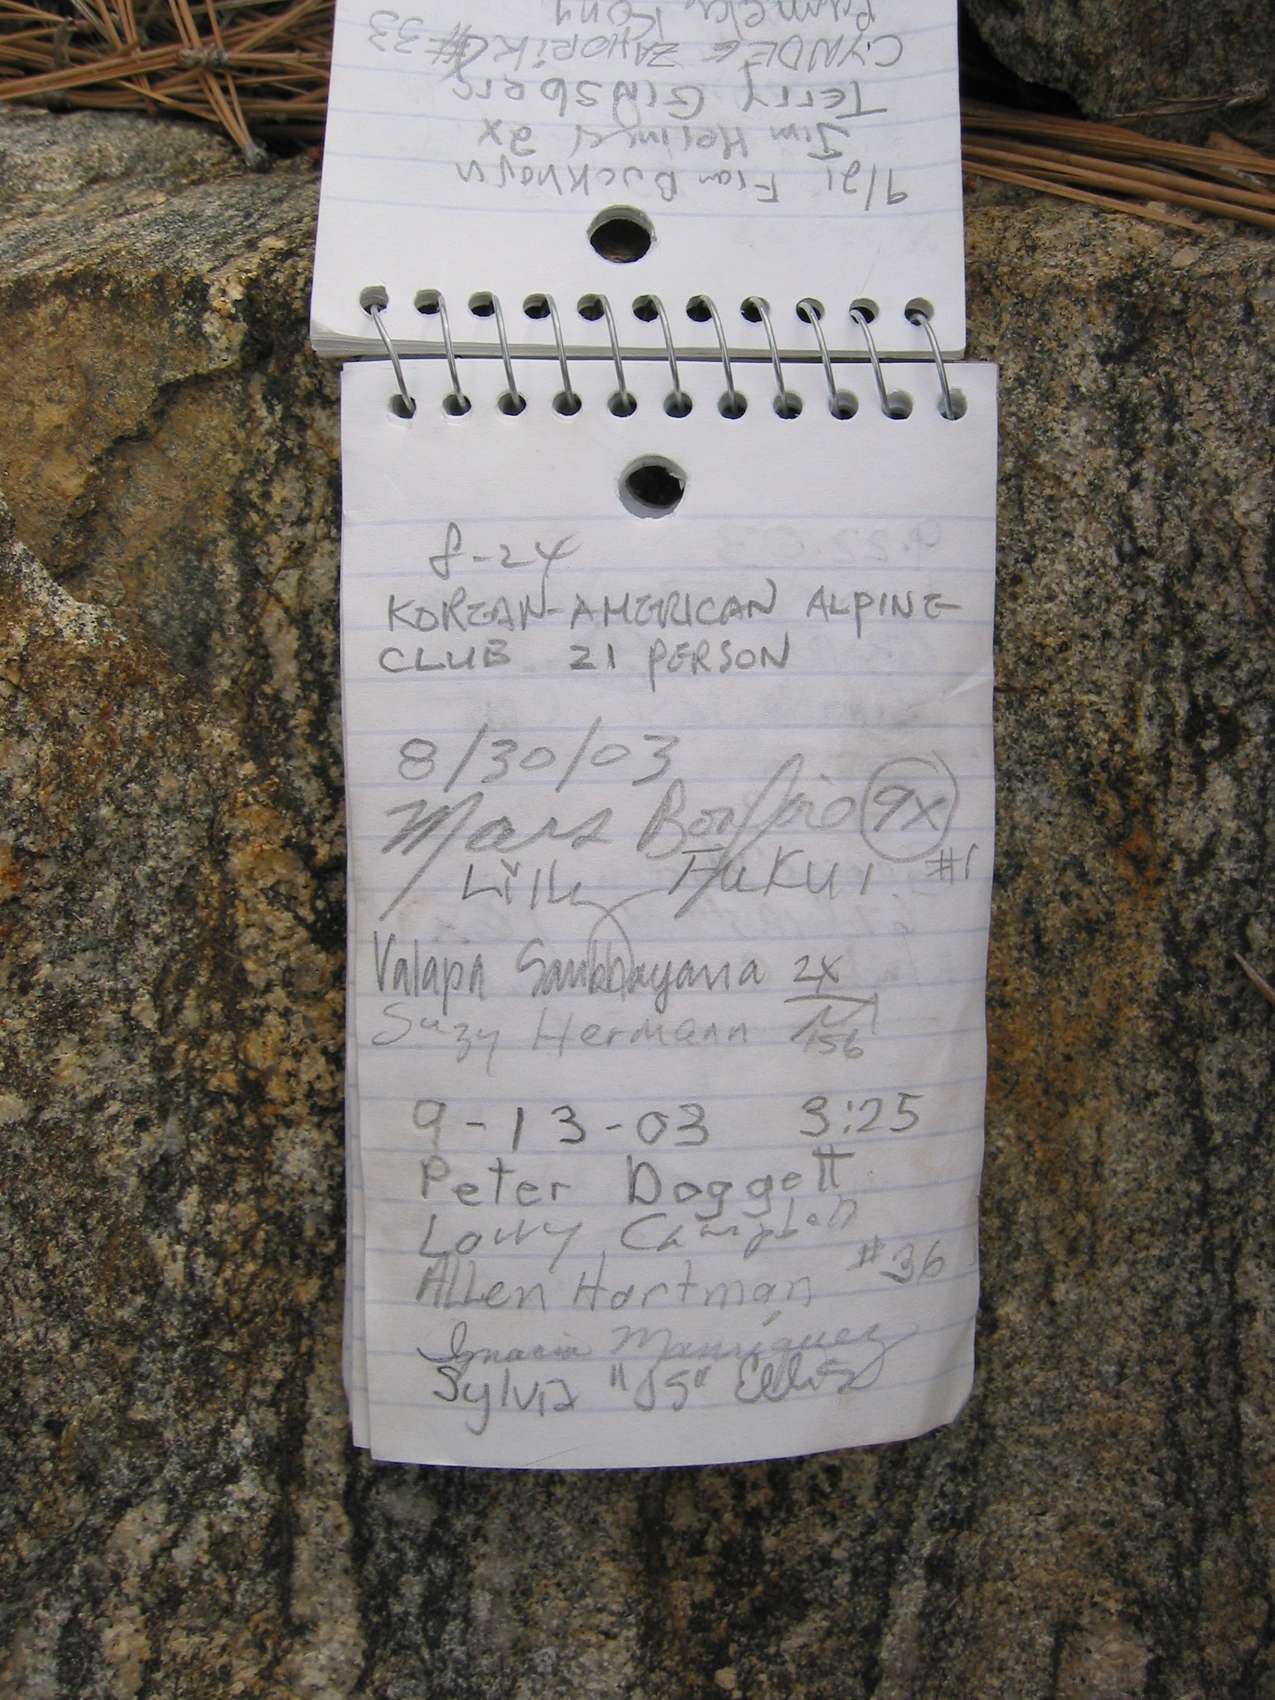 9/21 Fran Buckhajn
Jim Helmer 2x
Terry Ginsberg
CYNDEE ZAHORIK #33
Pameka Kony
8-24
KOREAN-AMERICAN ALPINE
CLUB 21 PERSON
8/30/03
Mars Bonfire 9X
Lilly Fukui #1
Valapa Sankhayana 2X
Suzy Hermann 156
9-13-03 3:25
Peter Doggett
Larry Campbell
Allen Hartman #36
Ignacia Manríquez
Sylvia "JS"